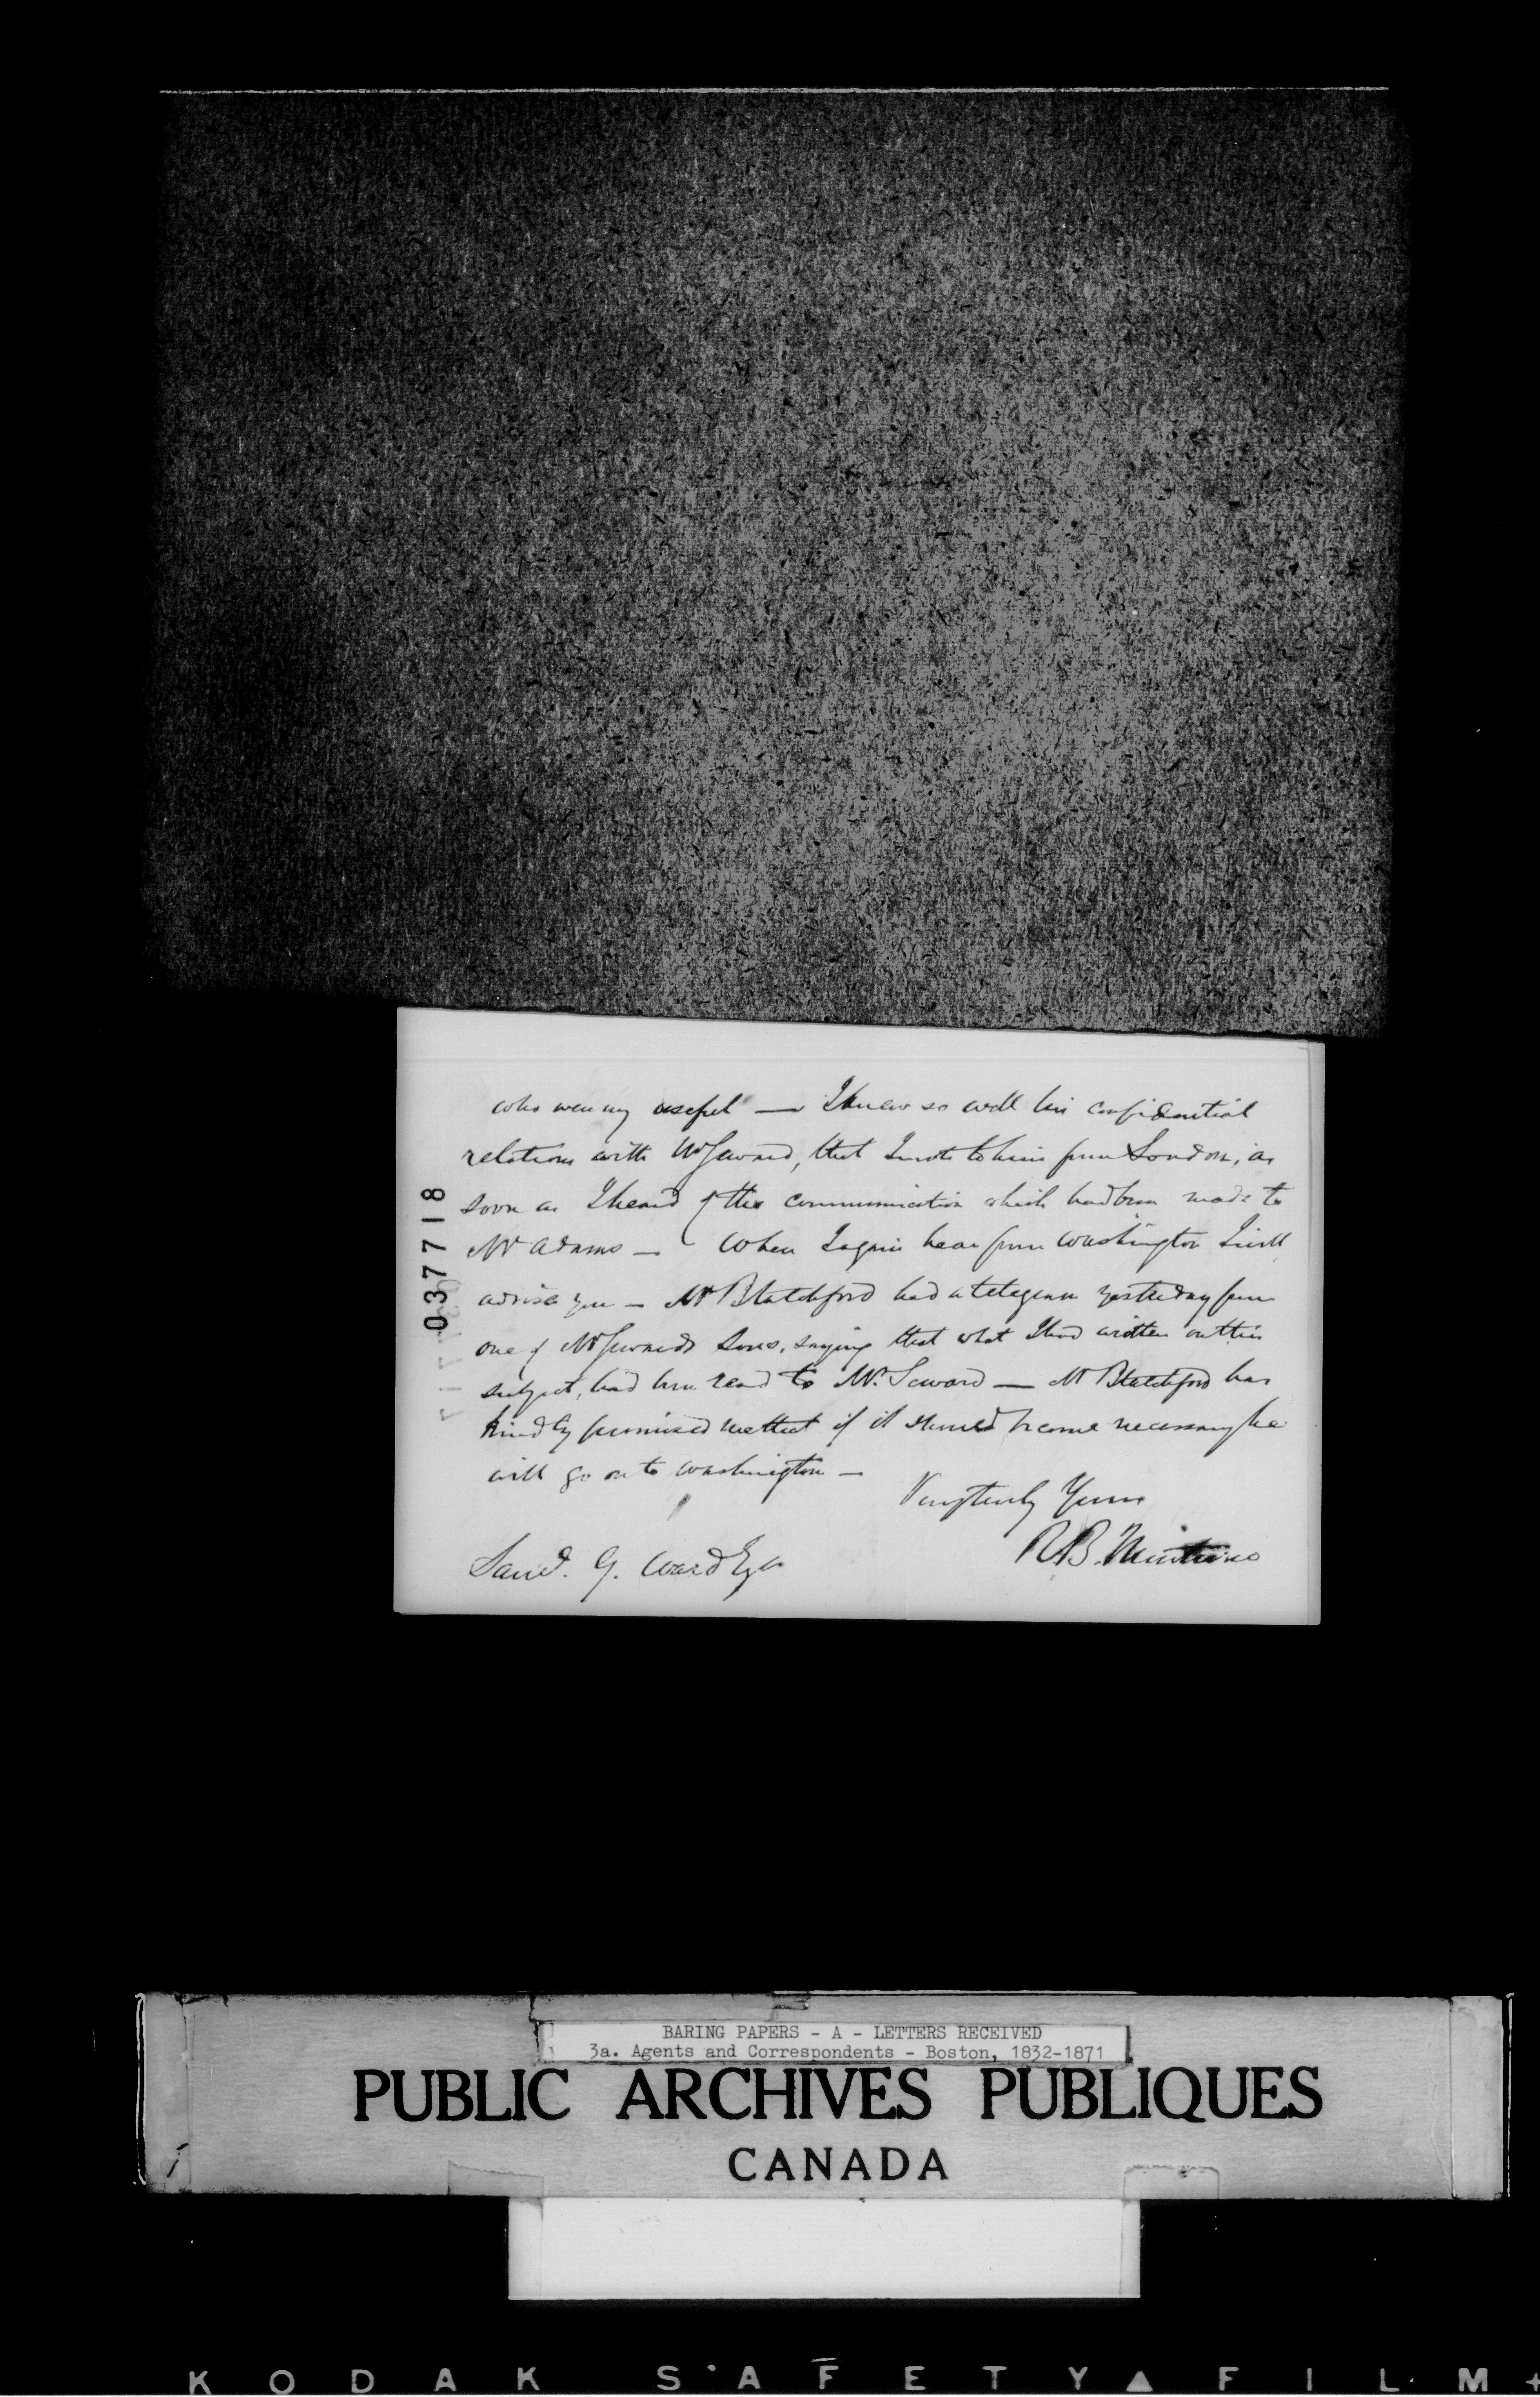 who were very useful — I knew so well his confidential
relations with Mr Seward, that I wrote to him from London, as
soon as I heard of the communication which had been made to
Mr Adams — When I again hear from Washington I will
advise you — Mr Blatchford had a telegram yesterday from
one of Mr Sewards Sons, saying that what I had written on this
subject, had been read to Mr. Seward — Mr Blatchford has
kindly promised me that if it should become necessary he
will go on to Washington —
Very truly Yours
R.B. Minturn
Saml. G. Ward Esqr
037718
BARING PAPERS - A - LETTERS RECEIVED
3a. Agents and Correspondents - Boston, 1832-1871
PUBLIC ARCHIVES PUBLIQUES
CANADA
KODAK SAFETY▲FILM+